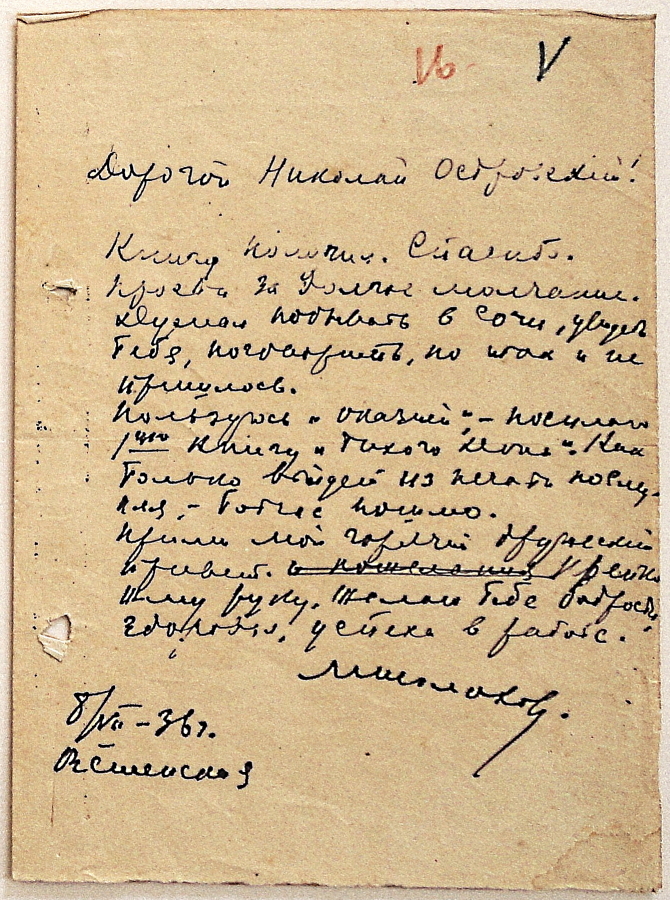 V
Дорогой Николай Островский!
Книгу получил. Спасибо.
Прости за долгое молчание.
Думал побывать в Сочи, увидеть
тебя, поговорить, но так и не
пришлось.
Пользуюсь „оказией“, – посылаю
1ую книгу „Тихого Дона“. Как
только выйдет из печати послед-
няя, – тотчас пошлю.
Прими мой горячий дружеский
привет. и пожелания Крепко
жму руку. Желаю тебе бодрости,
здоровья, успеха в работе.
М Шолохов.
8/VII – 36 г.
Вёшенская